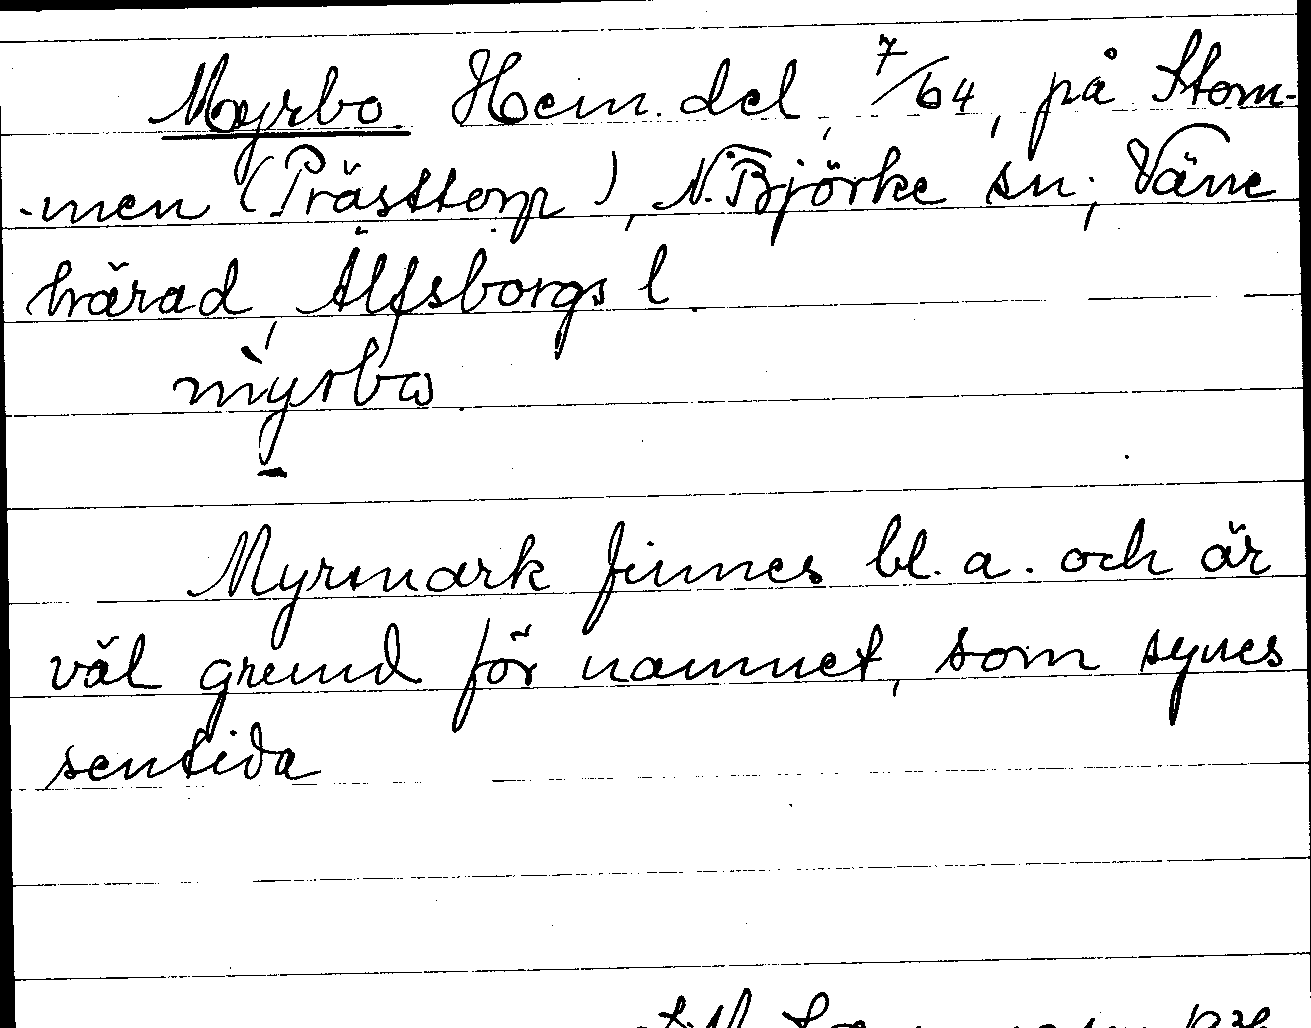 Myrbo Hem. del, 7/64, på Stom-
-men (Prästtorp), N. Björke sn; Väne
härad, Älfsborgs l.
mỳrbω
Myrmark finnes bl. a. och är
väl grund för namnet, som synes
sentida